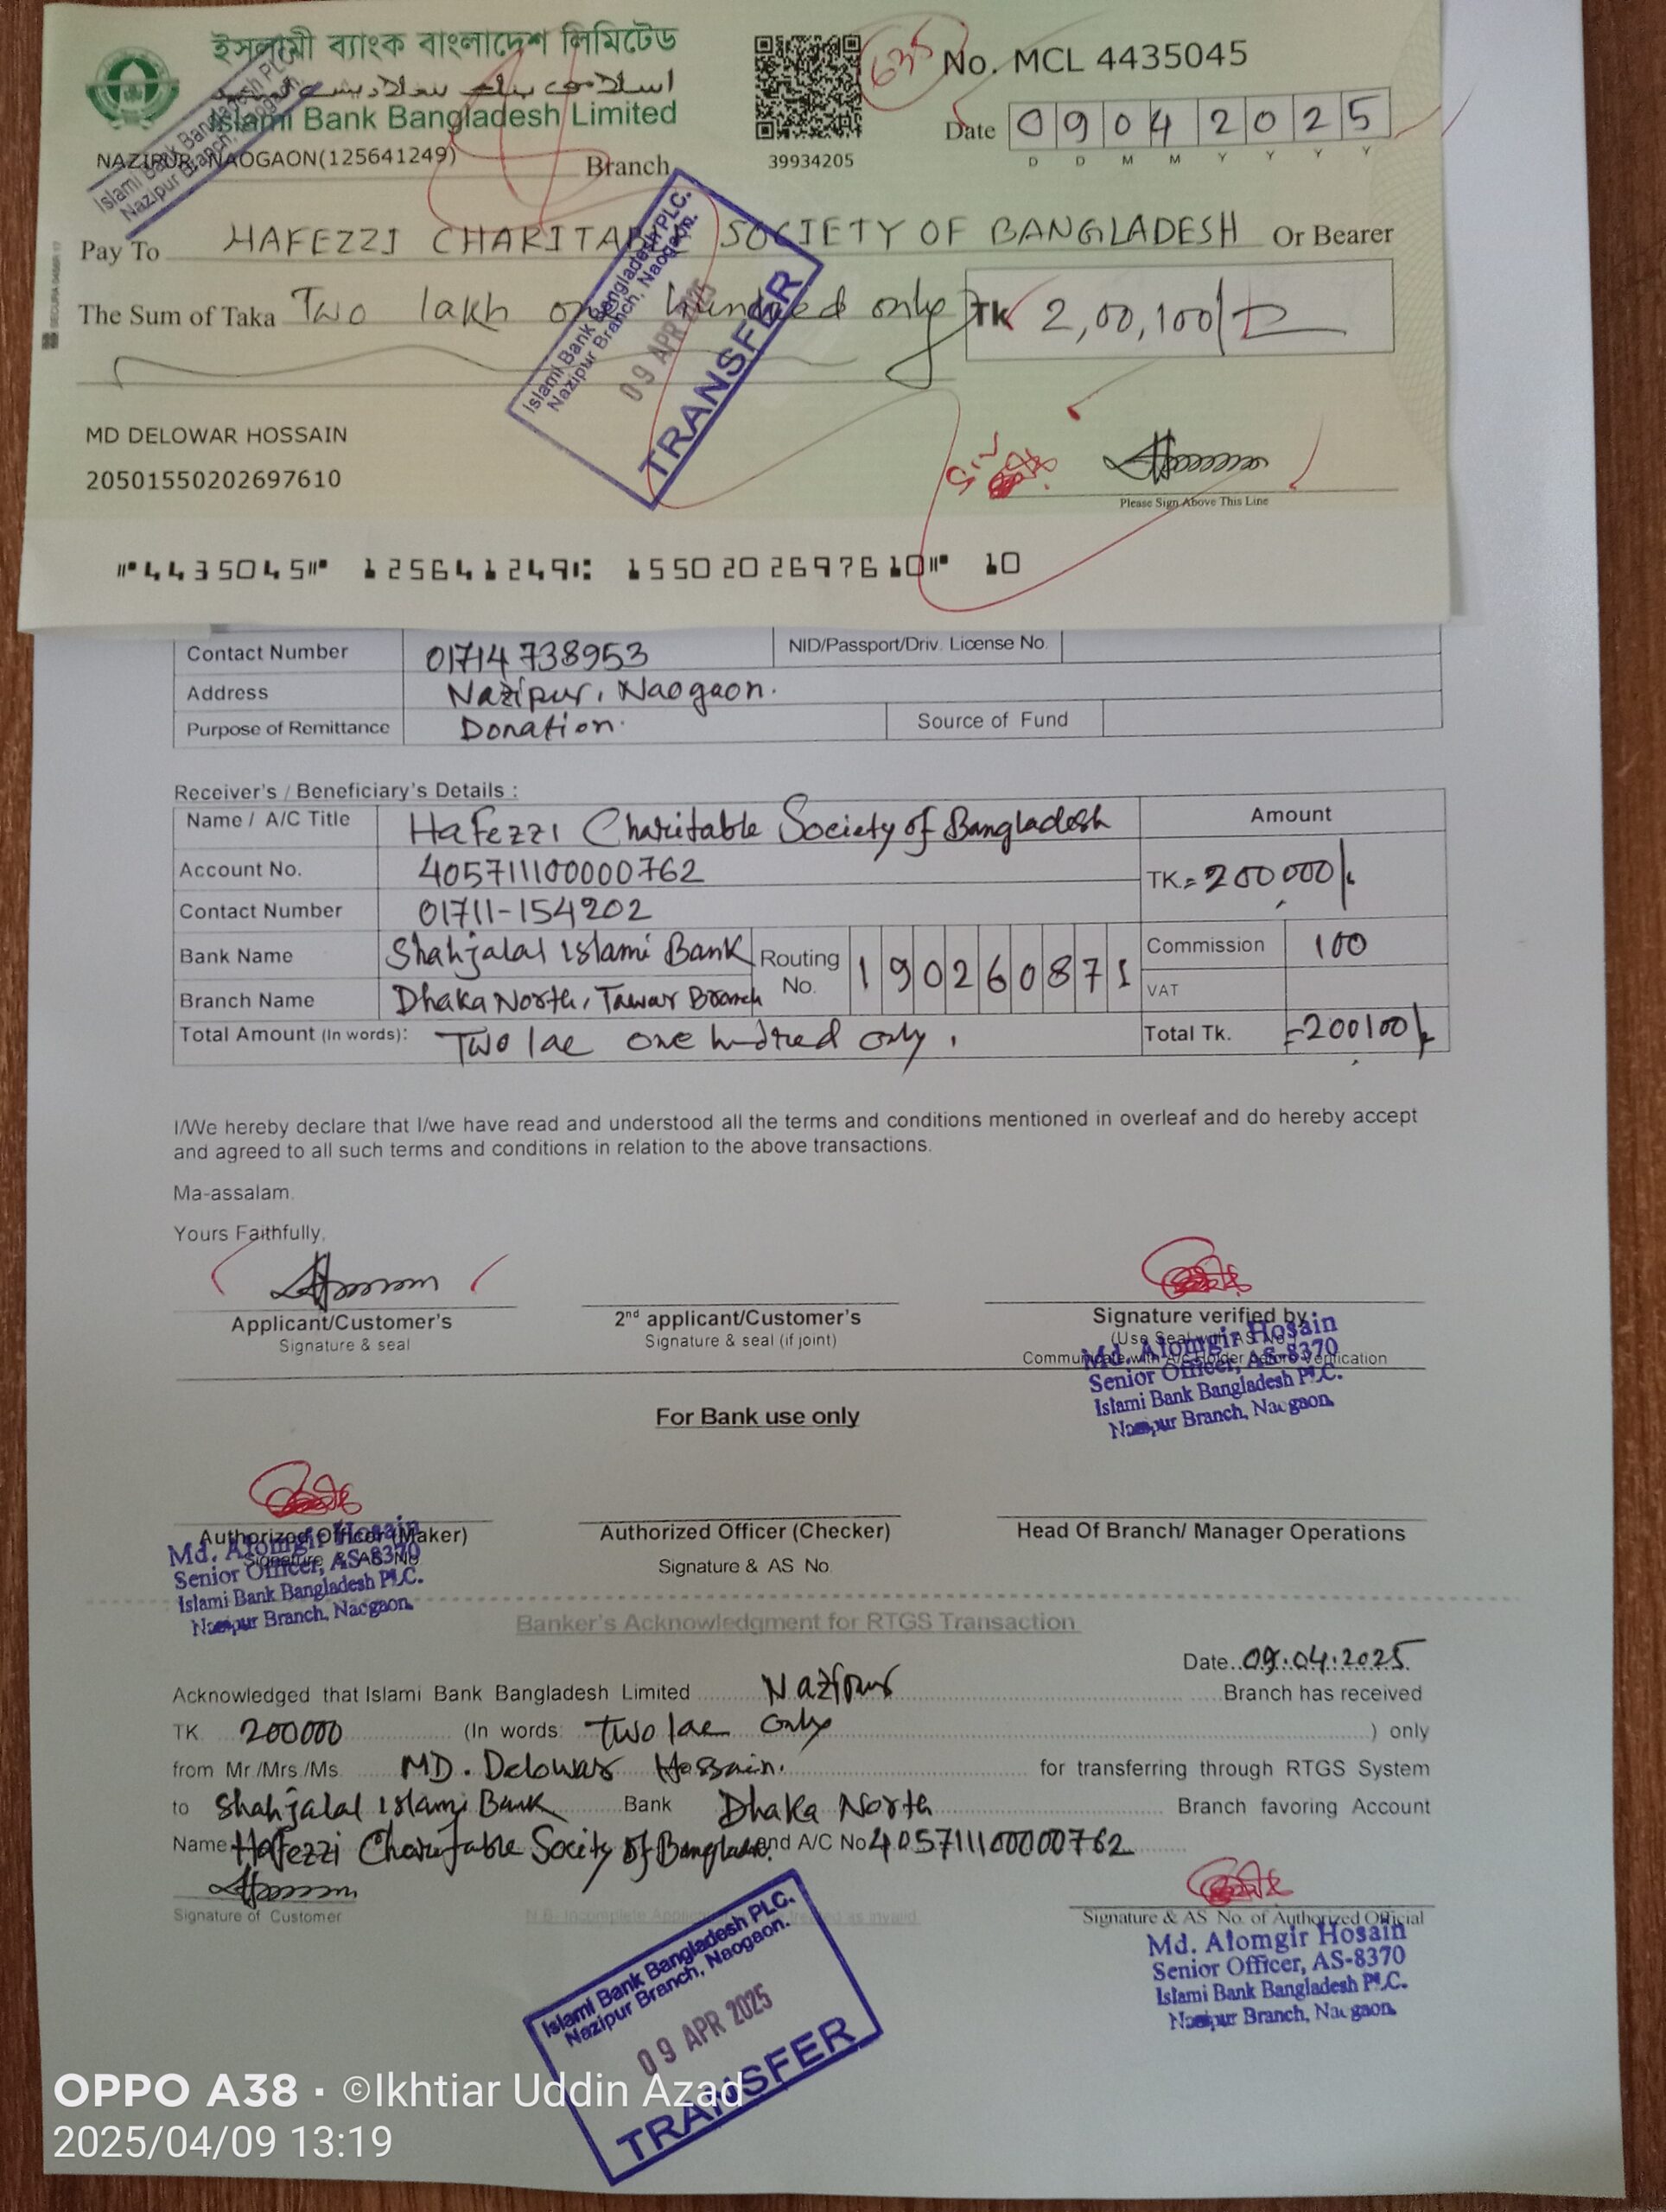 ইসলামী ব্যাংক বাংলাদেশ লিমিটেড
Islami Bank Bangladesh Limited
NAZIPUR, NAOGAON(125641249) Branch
Islami Bank Bangladesh PLC.
Nazipur Branch, Naogaon.
39934205
635
No. MCL 4435045
Date 09042025
D D M M Y Y Y Y
Pay To HAFEZZI CHARITABLE SOCIETY OF BANGLADESH Or Bearer
The Sum of Taka Two lakh one hundred only Tk 2,00,100/=
Islami Bank Bangladesh PLC.
Nazipur Branch, Naogaon.
09 APR 2025
TRANSFER
MD DELOWAR HOSSAIN
20501550202697610
Please Sign Above This Line
4435045 125641249 1550202697610 10
Contact Number 01714738953 NID/Passport/Driv. License No.
Address Nazipur, Naogaon.
Purpose of Remittance Donation. Source of Fund
Receiver's / Beneficiary's Details :
Name / A/C Title Hafezzi Charitable Society of Bangladesh Amount
Account No. 405711100000762 TK.= 200,000/-
Contact Number 01711-154202
Bank Name Shahjalal Islami Bank Routing No. 190260871 Commission 100
Branch Name Dhaka North, Tawar Branch VAT
Total Amount (In words): Two lac one hundred only. Total Tk. =200100/-
I/We hereby declare that I/we have read and understood all the terms and conditions mentioned in overleaf and do hereby accept
and agreed to all such terms and conditions in relation to the above transactions.
Ma-assalam.
Yours Faithfully,
Applicant/Customer's 2nd applicant/Customer's Signature verified by
Signature & seal Signature & seal (if joint) (Use Seal with AS No.)
Communicate with A/c Holder before Verification
Md. Alomgir Hosain
Senior Officer, AS-8370
Islami Bank Bangladesh PLC.
Nazipur Branch, Naogaon.
For Bank use only
Authorized Officer (Maker) Authorized Officer (Checker) Head Of Branch/ Manager Operations
Signature & AS No. Signature & AS No.
Md. Alomgir Hosain
Senior Officer, AS-8370
Islami Bank Bangladesh PLC.
Nazipur Branch, Naogaon.
Banker's Acknowledgment for RTGS Transaction
Date..09.04.2025
Acknowledged that Islami Bank Bangladesh Limited Nazipur Branch has received
TK. 200000 (In words: Two lac only ) only
from Mr./Mrs./Ms. MD. Delowar Hossain. for transferring through RTGS System
to Shahjalal Islami Bank Bank Dhaka North Branch favoring Account
Name Hafezzi Charitable Socity of Bangladesh and A/C No 405711100000762
Signature of Customer N.B- Incomplete treated as invalid. Signature & AS No. of Authorized Official
Md. Alomgir Hosain
Senior Officer, AS-8370
Islami Bank Bangladesh PLC.
Nazipur Branch, Naogaon.
Islami Bank Bangladesh PLC.
Nazipur Branch, Naogaon.
09 APR 2025
TRANSFER
OPPO A38 · ©Ikhtiar Uddin Azad
2025/04/09 13:19